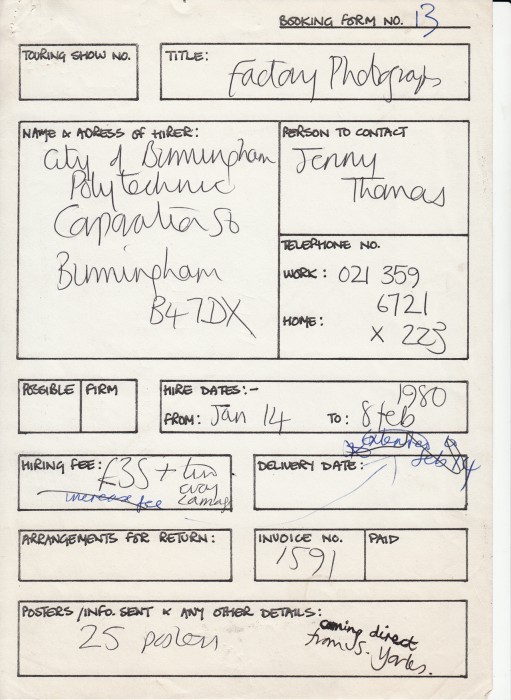 BOOKING FORM NO. 13
TOURING SHOW NO.
TITLE:
Factory Photograps
NAME & ADRESS OF HIRER:
City of Birmingham
Polytechnic
Corporation St
Birmingham
B47DX
PERSON TO CONTACT
Jenny
Thomas
TELEPHONE NO.
WORK: 021 359
6721
HOME: X 223
POSSIBLE FIRM
HIRE DATES:-
1980
FROM: Jan 14 TO: 8 feb
extended
feb 14
HIRING FEE: £35 + two
way
carriage
increase fee
DELIVERY DATE:
ARRANGEMENTS FOR RETURN:
INVOICE NO.
1591
PAID
POSTERS/INFO. SENT & ANY OTHER DETAILS:
25 posters
coming direct
from S. Yorks.